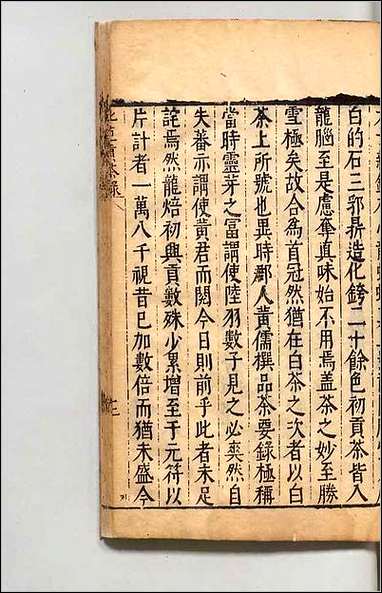 白的石三郭鼎造化銙二十餘色初貢茶皆入
龍腦至是慮奪真味始不用焉盖茶之妙至勝
雪極矣故合為首冠然猶在白茶之次者以白
茶上所號也異時郡人黃儒撰品茶要錄極稱
當時靈芽之冨謂使陸羽數子見之必爽然自
失蕃亦謂使黃君而閱今日則前乎此者未足
詫焉然龍焙初興貢數殊少累增至于元符以
片計者一萬八千視昔已加數倍而猶未盛今